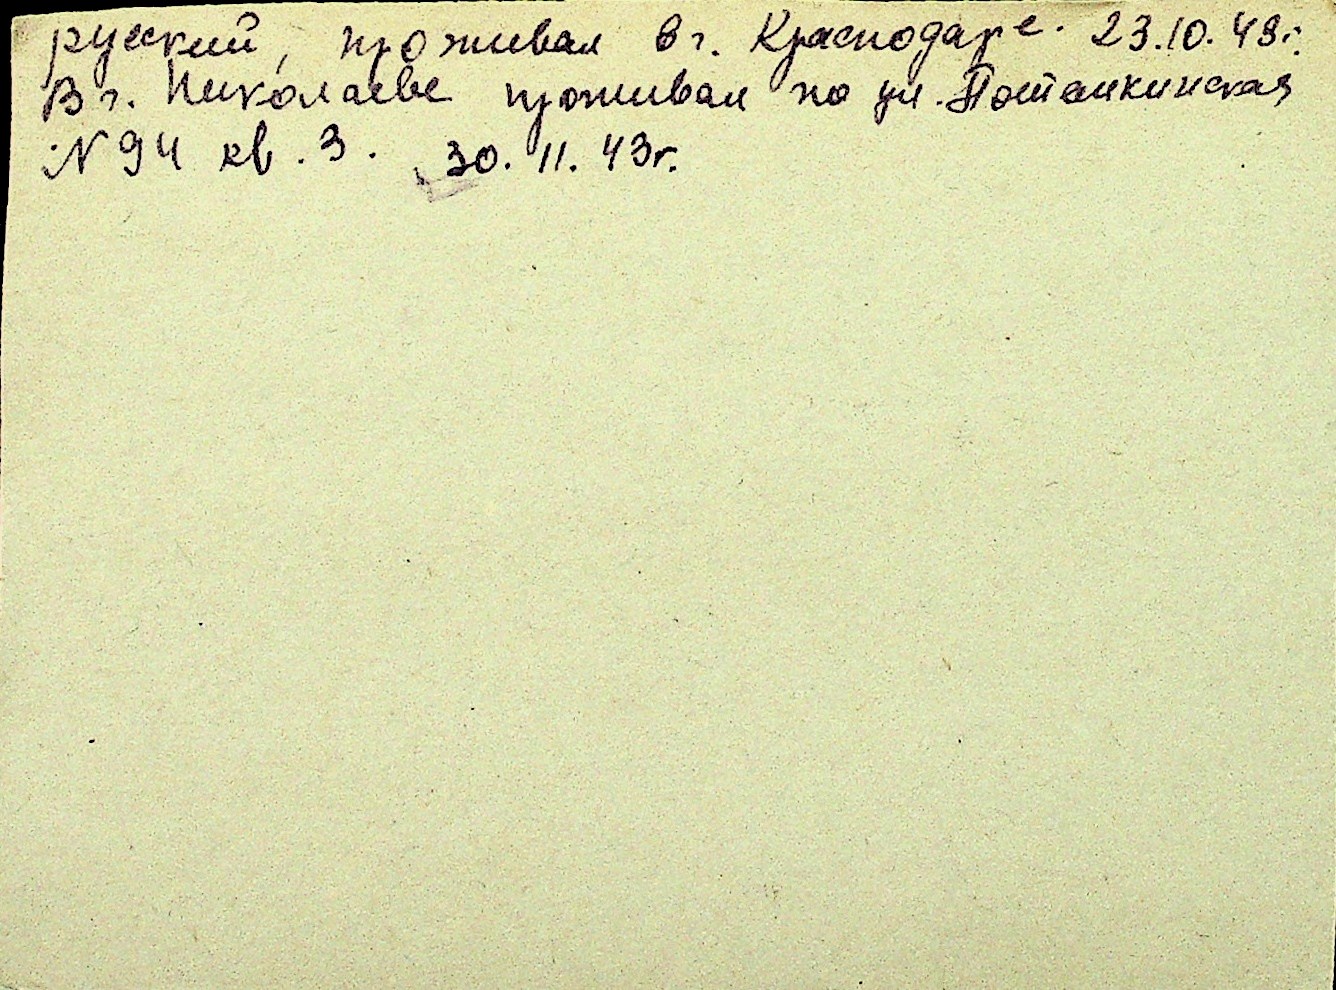 русский, проживал в г. Краснодаре. 23.10.43г.
В г. Николаеве проживал по ул. Потемкинская
N 94 кв. 3. 30. 11. 43г.